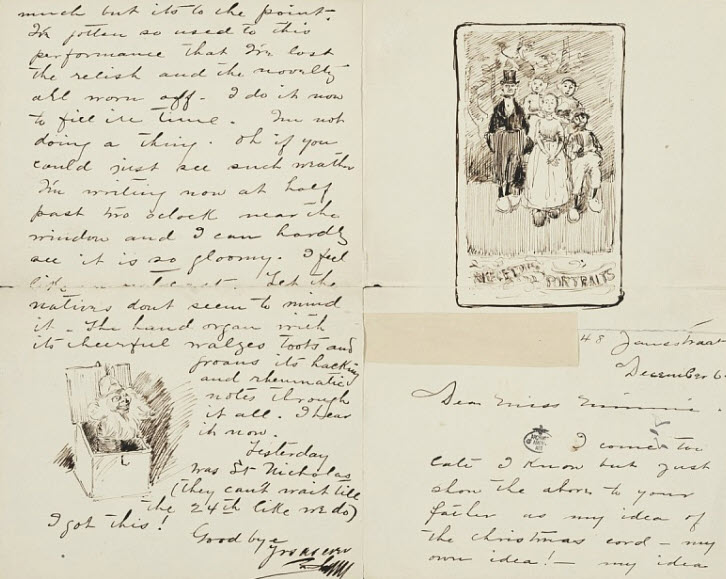 much but its to the point.
I've gotten so used to this
performance that I've lost
the relish and the novelty
all worn off. I do it now
to fill in time. I'm not
doing a thing. Oh if you
could just see such weather
I'm writing now at half
past two o'clock near the
window and I can hardly
see it is so gloomy. I feel
Yet the
natives dont seem to mind
it - The hand organ with
its cheerful walzes toots and
groans its hacking
and rheumatic
notes through
it all. I hear
it now.
Yesterday
was St Nicholas
(they can't wait till
the 24th like we do)
I got this!
Good bye
Yrs as ever
PORTRAITS
48 Janestraat
December 6
Dear Miss Minnie.
I come too
late I know but just
show the above to your
father as my idea of
the Christmas card - my
own idea! - my idea